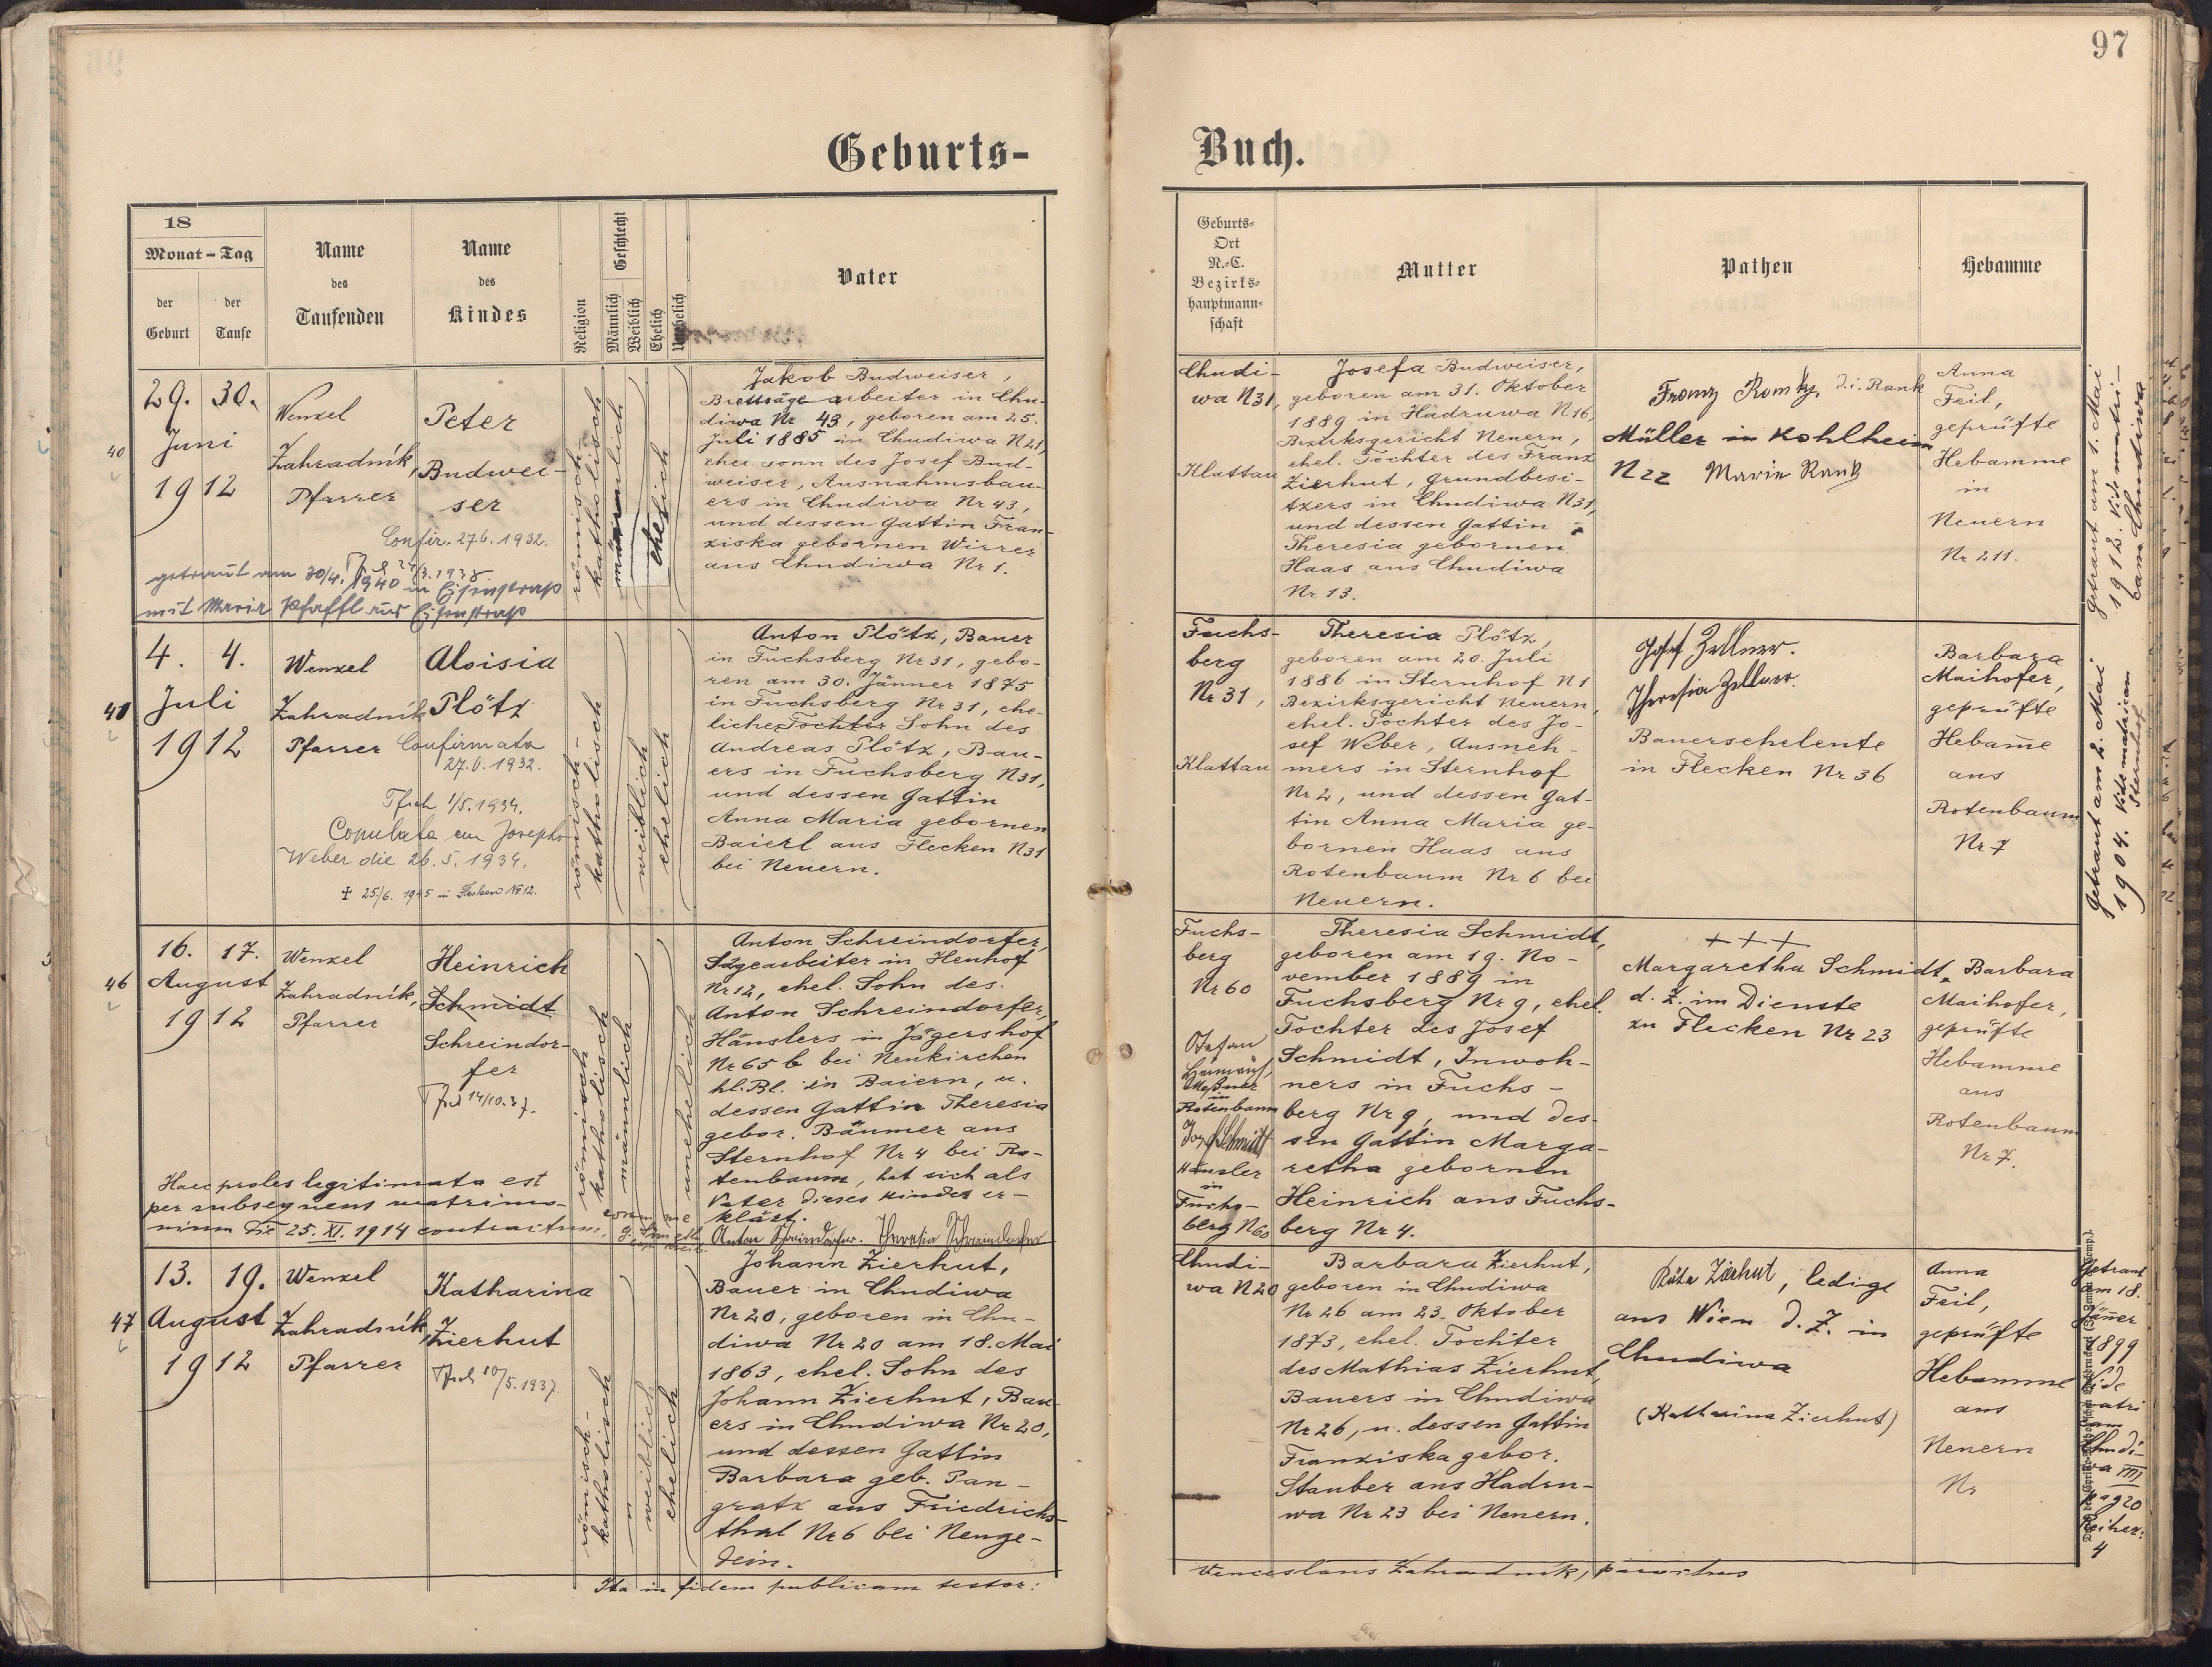 97
Geburts-
Buch.
18
Monat - Tag
der Geburt
der Taufe
Name
des
Taufenden
Name
des
Kindes
Religion
Geschlecht
Männlich
Weiblich
Ehelich
Unehelich
Vater
Geburts-
Ort
N.-C.
Bezirks-
hauptmann-
schaft
Mutter
Pathen
Hebamme
40
29. 30.
Juni
1912
Wenzel
Zahradník,
Pfarrer
Peter
Budwei-
ser
Confir. 27.6.1932.
getraut am 30/4. 1940 in Eisenstrass
mit Maria Pfaffl aus Eisenstrass
römisch-
katholisch
männlich
ehelich
Jakob Budweiser,
Brettsäge arbeiter in Chu-
diwa Nr 43, geboren am 25.
Juli 1885 in Chudiwa N 21,
ehel. Sonn des Josef Bud-
weiser, Ausnahmsbau-
ers in Chudiwa Nr 43,
und dessen Gattin Fran-
ziska gebornen Wirrer
aus Chudiwa Nr 1.
Chudi-
wa N31,
Klattau
Josefa Budweiser,
geboren am 31. Oktober
1889 in Hadruwa N 16,
Bezirksgericht Neuern,
ehel. Tochter des Franz
Zierhut, Grundbesi-
tzers in Chudiwa N31,
und dessen Gattin
Theresia gebornen
Haas aus Chudiwa
Nr 13.
Franz Rank
Müller in Kohlheim
N 22 Maria Rank
Anna
Feil,
geprüfte
Hebamme
in
Neuern
Nr 211.
Getraut am 1. Mai
1912. Vide matri-
cam Chudiwa
41
4. 4.
Juli
1912
Wenzel
Zahradník
Pfarrer
Aloisia
Plötz
Confirmata
27.6.1932.
Tfsch 1/5.1934.
Copulata cum Josepho
Weber die 26.5.1934.
+ 25/6. 1945 in Flecken N 12.
römisch-
katholisch
weiblich
ehelich
Anton Plötz, Bauer
in Fuchsberg Nr 31, gebo-
ren am 30. Jänner 1875
in Fuchsberg Nr 31, ehe-
licher Tochter Sohn des
Andreas Plötz, Bau-
ers in Fuchsberg N31,
und dessen Gattin
Anna Maria gebornen
Baierl aus Flecken N31
bei Neuern.
Fuchs-
berg
Nr 31,
Klattau
Theresia Plötz,
geboren am 20. Juli
1886 in Sternhof N1
Bezirksgericht Neuern,
ehel. Tochter des Jo-
sef Weber, Ausneh-
mers in Sternhof
Nr 2, und dessen Gat-
tin Anna Maria ge-
bornen Haas aus
Rotenbaum Nr 6 bei
Neuern.
Josef Zellner.
Theresia Zellner.
Bauerseheleute
in Flecken Nr 36
Barbara
Maihofer,
geprüfte
Hebam̄e
aus
Rotenbaum
Nr 7
Getraut am 2. Mai
1904. Vide matricam
Sternhof
46
16. 17.
August
1912
Wenzel
Zahradník,
Pfarrer
Heinrich
Schmidt
Schreindor-
fer
Tfsch 14/10.37.
Haec proles legitimata est
per subsequens matrimo-
nium die 25. XI. 1914 contractum.
römisch
katholisch
männlich
unehelich
Anton Schreindorfer,
Sägearbeiter in Heuhof
Nr 12, ehel. Sohn des
Anton Schreindorfer,
Häuslers in Jägershof
Nr 65 b bei Neukirchen
hl. Bl. in Baiern, u.
dessen Gattin Theresia
gebor. Bäumer aus
Sternhof Nr 4 bei Ro-
tenbaum, hat sich als
Vater dieses Kindes er-
klärt.
Anton Schreindorfer. Theresia Schreindorfer
Fuchs-
berg
Nr 60
Stefan
Meßner
in
Rotenbaum
Josef Schmidt
Häusler
in
Fuchs-
berg N60
Theresia Schmidt,
geboren am 19. No-
vember 1889 in
Fuchsberg Nr 9, ehel.
Tochter des Josef
Schmidt, Inwoh-
ners in Fuchs-
berg Nr 9, und des-
sen Gattin Marga-
retha gebornen
Heinrich aus Fuchs-
berg Nr 4.
+++
Margaretha Schmidt,
d. Z. im Dienste
zu Flecken Nr 23
Barbara
Maihofer,
geprüfte
Hebamme
aus
Rotenbaum
Nr 7.
47
13. 19.
August
1912
Wenzel
Zahradník,
Pfarrer
Katharina
Zierhut
Tfsch 10/5.1937
römisch-
katholisch
weiblich
ehelich
Johann Zierhut,
Bauer in Chudiwa
Nr 20, geboren in Chu-
diwa Nr 20 am 18. Mai
1863, ehel. Sohn des
Johann Zierhut, Bau-
ers in Chudiwa Nr 20,
und dessen Gattin
Barbara geb. Pan-
gratz aus Friedrichs-
thal Nr 6 bei Neuge-
dein.
Chudi-
wa N20
Barbara Zierhut,
geboren in Chudiwa
Nr 26 am 23. Oktober
1873, ehel. Tochter
des Mathias Zierhut,
Bauers in Chudiwa
Nr 26, u. dessen Gattin
Franziska gebor.
Stauber aus Hadru-
wa Nr 23 bei Neuern.
Käte Zierhut, ledige
aus Wien d. Z. in
Chudiwa
(Katharina Zierhut)
Anna
Feil,
geprüfte
Hebamme
aus
Neuern
Nr
Getraut
am 18.
Jän̄er
1899
Vide
matri
cam
Chudi-
wa III
pag 20
Reihez.
4
Ita in fidem publicam testor:
Venceslaus Zahradník, parochus